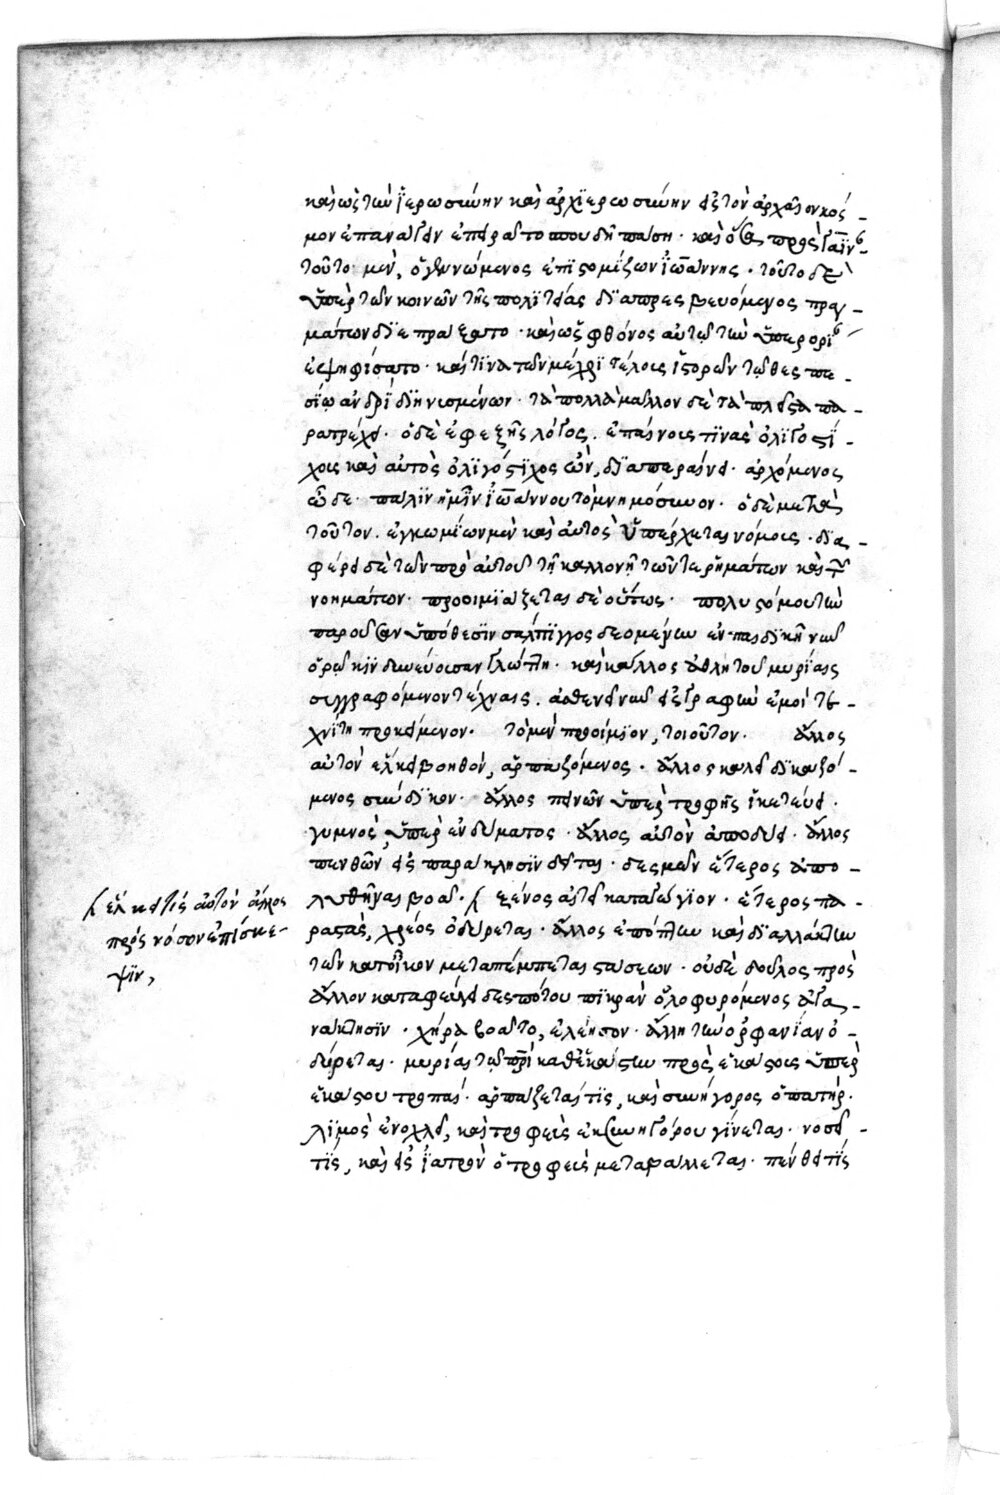 καὶ ὡς τὴν ἱερωσύνην καὶ ἀρχιερωσύνην εἰς τὸν ἀρχαῖον κόσ-
μον ἐπαναγαγεῖν ἐπειρᾶτο σπουδῇ πάσῃ. καὶ ὅσα πρὸς
τοῦτο μὲν, ὁ γεννώμενος ἐπιστομίζων ἰωάννης. τοῦτο δὲ
ὑπὲρ τῶν κοινῶν τῆς πολιτείας διαπρεσβευόμενος πραγ-
μάτων διεπράξατο. καὶ ὡς φθόνος αὐτῷ τὴν ὑπερορίαν
ἐψηφίσατο. καί τινα τῶν μέχρι τέλους ἱστορῶν τῷ θεσπε-
σίῳ ἀνδρὶ διηνυσμένων. τὰ πολλὰ μᾶλλον δὲ τὰ πλεῖστα πα-
ρατρέχει. ὁ δὲ ἐφεξῆς λόγος. ἐπαίνους τινὰς ὀλιγοστί-
χους καὶ αὐτὸς ὀλιγόστιχος ὢν, διαπεραίνει. ἀρχόμενος
ὧδε. πάλιν ἡμῖν ἰωάννου τὸ μνημόσυνον. ὁ δὲ μετὰ
τοῦτον. ἐγκωμίων μὲν καὶ αὐτὸς ὑπέρχεται νόμοις. δια-
φέρει δὲ τῶν πρὸ αὐτοῦ τῇ καλλονῇ τῶν τε ῥημάτων καὶ τῶν
νοημάτων. προοιμιάζεται δὲ οὕτως. πολυστόμου τὴν
παροῦσαν ὑπόθεσιν σάλπιγγος δεομένην ἐν παιδικῇ νῦν
ὁρῶ κινδυνεύουσαν γλώττῃ. καὶ κάλλος ἀθλητοῦ μυρίαις
συγγραφόμενον τέχναις. ἀσθενεῖ νῦν εἰς γραφὴν ἐμοὶ τε-
χνίτῃ προκείμενον. τὸ μὲν προοίμιον, τοιοῦτον. ἄλλος
αὐτὸν εἷλκε βοηθὸν, ἁρπαζόμενος. ἄλλος καλεῖ δικαζό-
μενος σύνδικον. ἄλλος πεινῶν ὑπὲρ τροφῆς ἱκετεύει.
γυμνὸς, ὑπὲρ ἐνδύματος. ἄλλος αὐτὸν ἀποδύει. ἄλλος
πενθῶν εἰς παράκλησιν δεῖται. δεσμῶν ἕτερος ἀπο-
λυθῆναι βοᾷ. ξένος αἰτεῖ καταγώγιον. ἕτερος πα-
ραστὰς, χρέος ὀδύρεται. ἄλλος ἐπόπτην καὶ διαλλάκτην
τῶν κατοίκων μεταπέμπεται στάσεων. οὐδὲ δοῦλος πρὸς
ἄλλον καταφεύγει δεσπότου πικρὰν ὀλοφυρόμενος ἀγα-
νάκτησιν. χήρα βοᾷ τὸ, ἐλέησον. ἄλλη τὴν ὀρφανίαν ὀ-
δύρεται. μυρίαι τῷ πατρὶ καθ' ἑκάστην πρὸς ἑκάστους ὑπὲρ
ἑκάστου τροπαί. ἁρπάζεταί τις, καὶ συνήγορος ὁ πατήρ.
λιμὸς ἐνοχλεῖ, καὶ τροφεὺς ἐκ συνηγόρου γίνεται. νοσεῖ
τίς, καὶ εἰς ἰατρὸν ὁ τροφεὺς μεταβάλλεται. πενθεῖ τίς
εἷλκε τίς αὐτὸν ἄλλος
πρὸς νόσον ἐπίσκε-
ψιν,